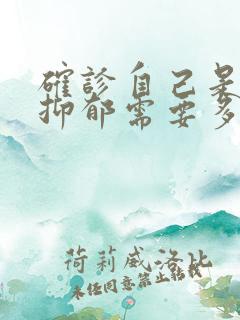 確診自己
抑郁需要多
荷莉威洛比
未经同意禁止轉載